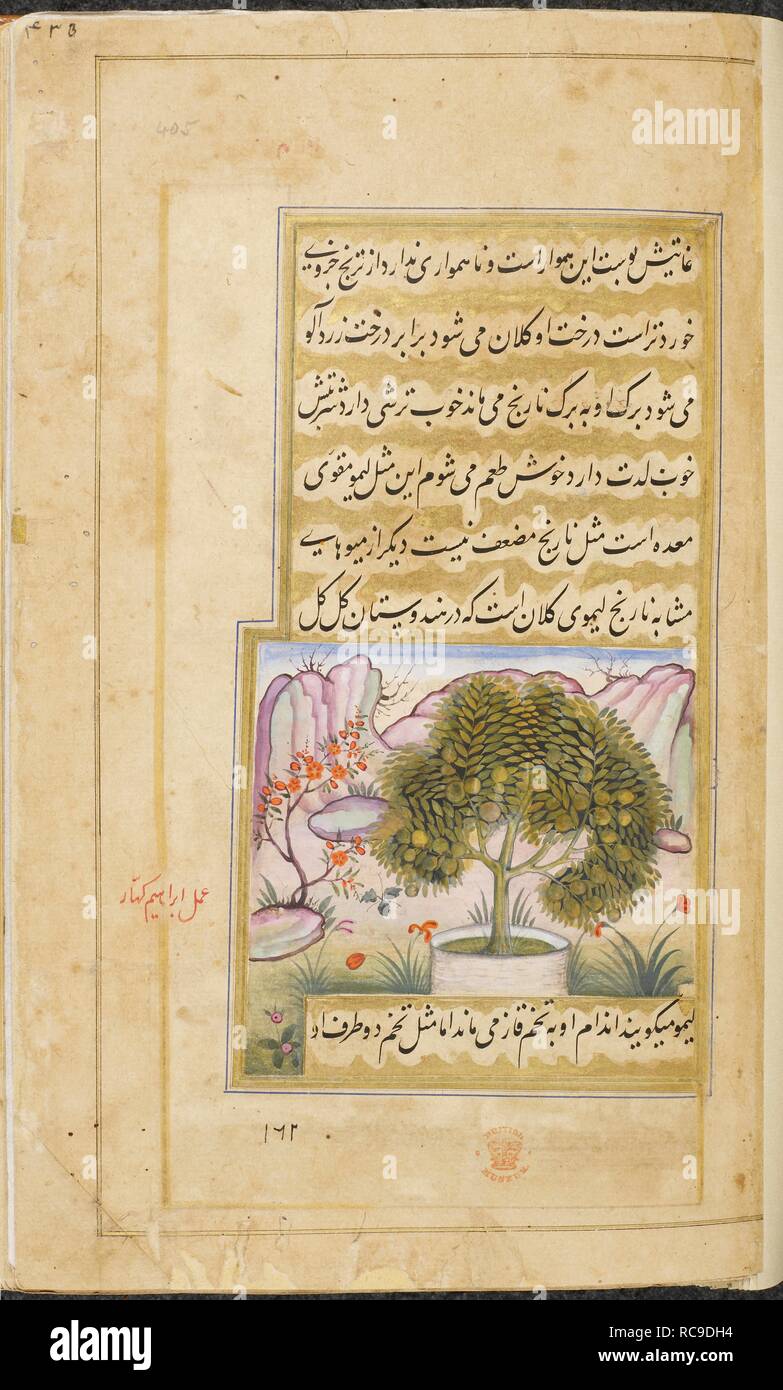 ۴۳۵
405
غایتیش پوست این هموار است و ناهمواری ندارد از ترنج جزوی
خوردتر است درخت او کلان می شود برابر درخت زردآلو
می شود برک او به برک نارنج می ماند خوب ترشی دارد شربتش
خوب لذت دارد خوش طعم می شود این مثل لیمو مقوی
معده است مثل نارنج مضعف نیست دیکر از میوهای
مشابه نارنج لیموی کلان است که در هندوستان کل کل
عمل ابراهیم کهار
لیمو میکویند اندام او به تخم قاز می ماند اما مثل تخم دو طرف او
۱۶۲
BRITISH MUSEUM
alamy
Image ID: RC9DH4
www.alamy.com